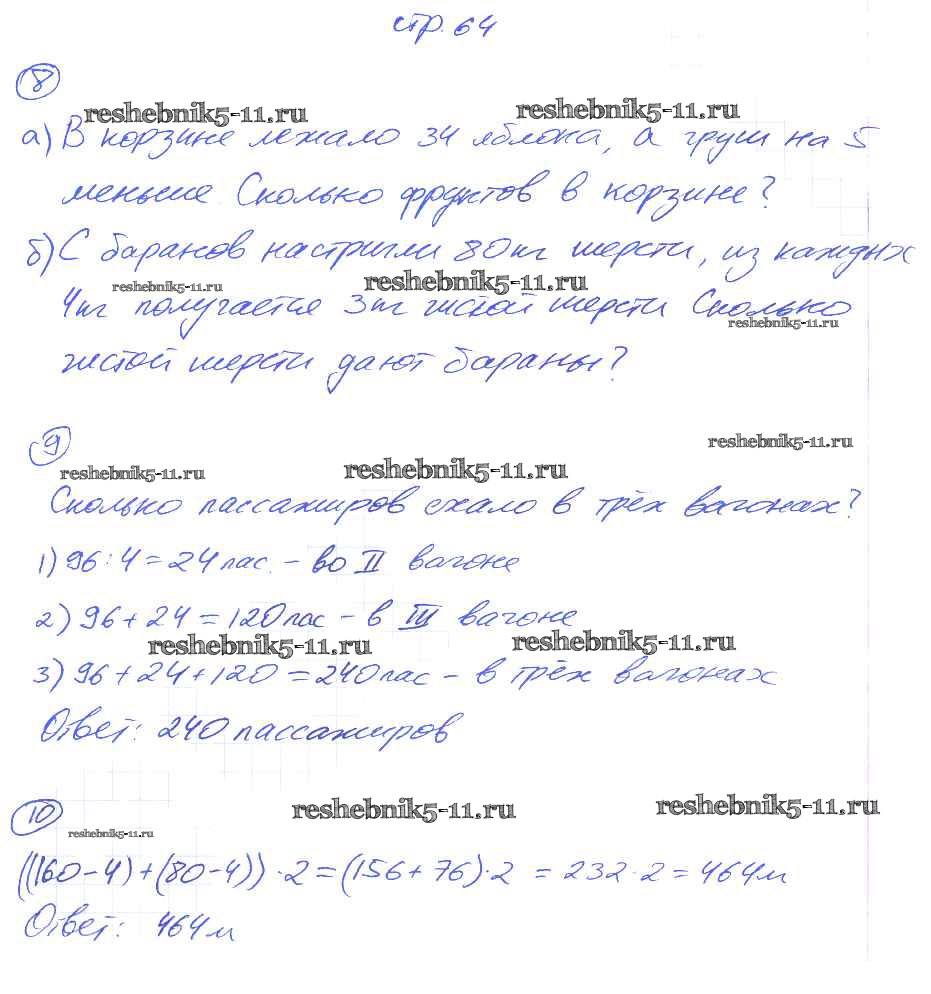 стр. 64
8
reshebnik5-11.ru reshebnik5-11.ru
а) В корзине лежало 34 яблока, а груш на 5
меньше. Сколько фруктов в корзине?
б) С баранов настригли 80 кг шерсти, из каждых
reshebnik5-11.ru reshebnik5-11.ru
4 кг получается 3 кг чистой шерсти Сколько
reshebnik5-11.ru
чистой шерсти дают бараны?
9
reshebnik5-11.ru
reshebnik5-11.ru reshebnik5-11.ru
Сколько пассажиров ехало в трёх вагонах?
1) 96 : 4 = 24 пас. – во II вагоне
2) 96 + 24 = 120 пас – в III вагоне
reshebnik5-11.ru reshebnik5-11.ru
3) 96 + 24 + 120 = 240 пас – в трёх вагонах
Ответ: 240 пассажиров
10
reshebnik5-11.ru reshebnik5-11.ru
reshebnik5-11.ru
((160 – 4) + (80 – 4)) · 2 = (156 + 76) · 2 = 232 · 2 = 464 м
Ответ: 464 м